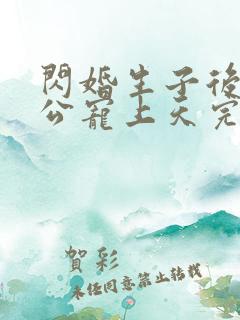 閃婚生子後
公寵上天完
賀彩
未任同意禁止轉載